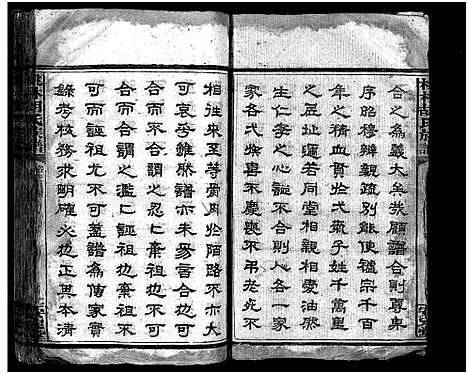 合之爲義大矣哉顧譜合則尊卑
序昭穆辨親疏別能使禮宗千百
年之精血貫於弌氣子姓千萬里
之居址通若同堂相親相愛油然
生仁孝之心設不合則人各一家
家各弌族喜不慶喪不弔老死不
相往來至等骨肉於陌路不亦大
可哀乎雖然譜亦未易言合也可
合而不合謂之忍仁棄祖也不可
合而合謂之濫仁誣祖也棄祖不
可而誣祖尤不可蓋譜爲傳家實
錄考核務求明確火也正其本清